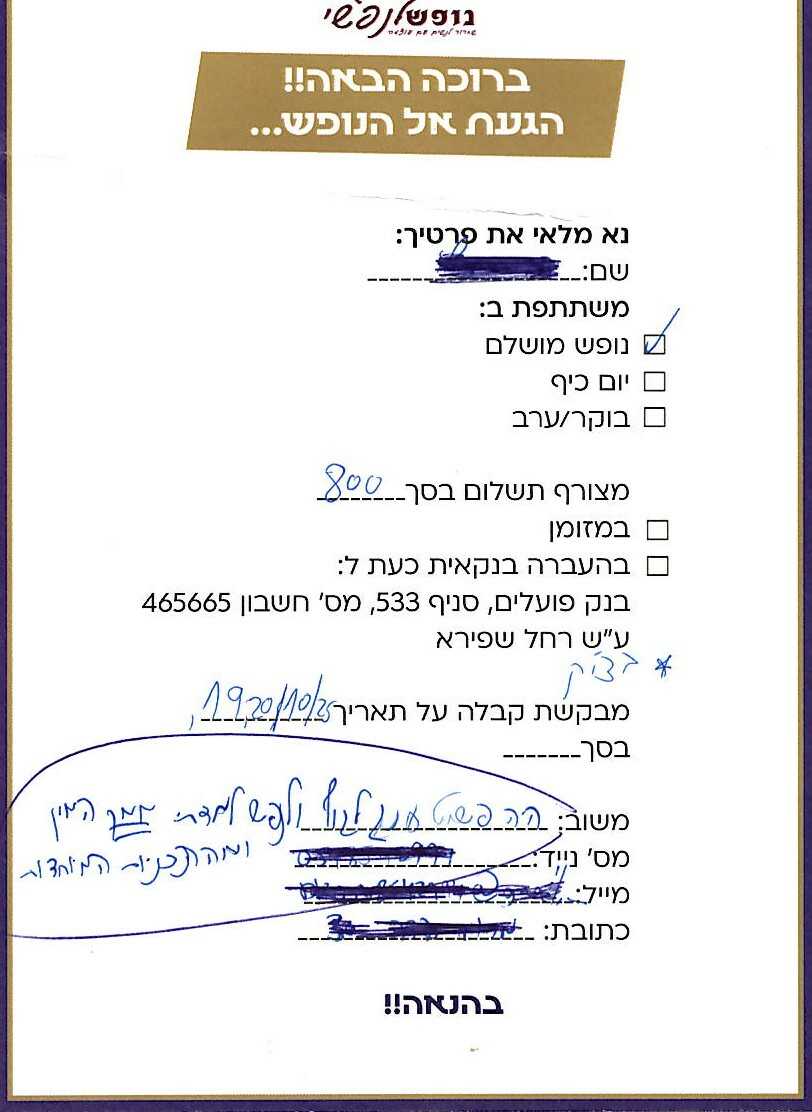 נופש לנפשי
ברוכה הבאה!!
הגעת אל הנופש...
נא מלאי את פרטיך:
שם:
משתתפת ב:
נופש מושלם
יום כיף
בוקר/ערב
מצורף תשלום בסך 800
במזומן
בהעברה בנקאית כעת ל:
בנק פועלים, סניף 533, מס' חשבון 465665
ע"ש רחל שפירא
* בצ'ק
מבקשת קבלה על תאריך 19,20/10/25,
בסך
משוב: היה פשוט עונג לגוף ולנפש למדתי המון
ומהתכניות המיוחדות
מס' נייד:
מייל:
כתובת:
בהנאה!!